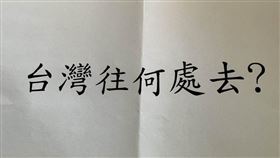 台灣往何處去?